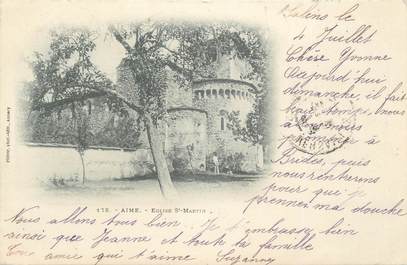 Salins le
4 Juillet
Chère Yvonne
Aujourd'hui
dimanche, il fait
temps, nous
pour
Brides, puis
nous rentrerons
pour que je
prenne ma douche
Nous allons tous bien. Je t'embrasse bien
ainsi que Jeanne et toute ta famille
Ton amie qui t'aime Suzanne
178 - AIME. - Eglise St-Martin
Pittier, phot.-édit., Annecy